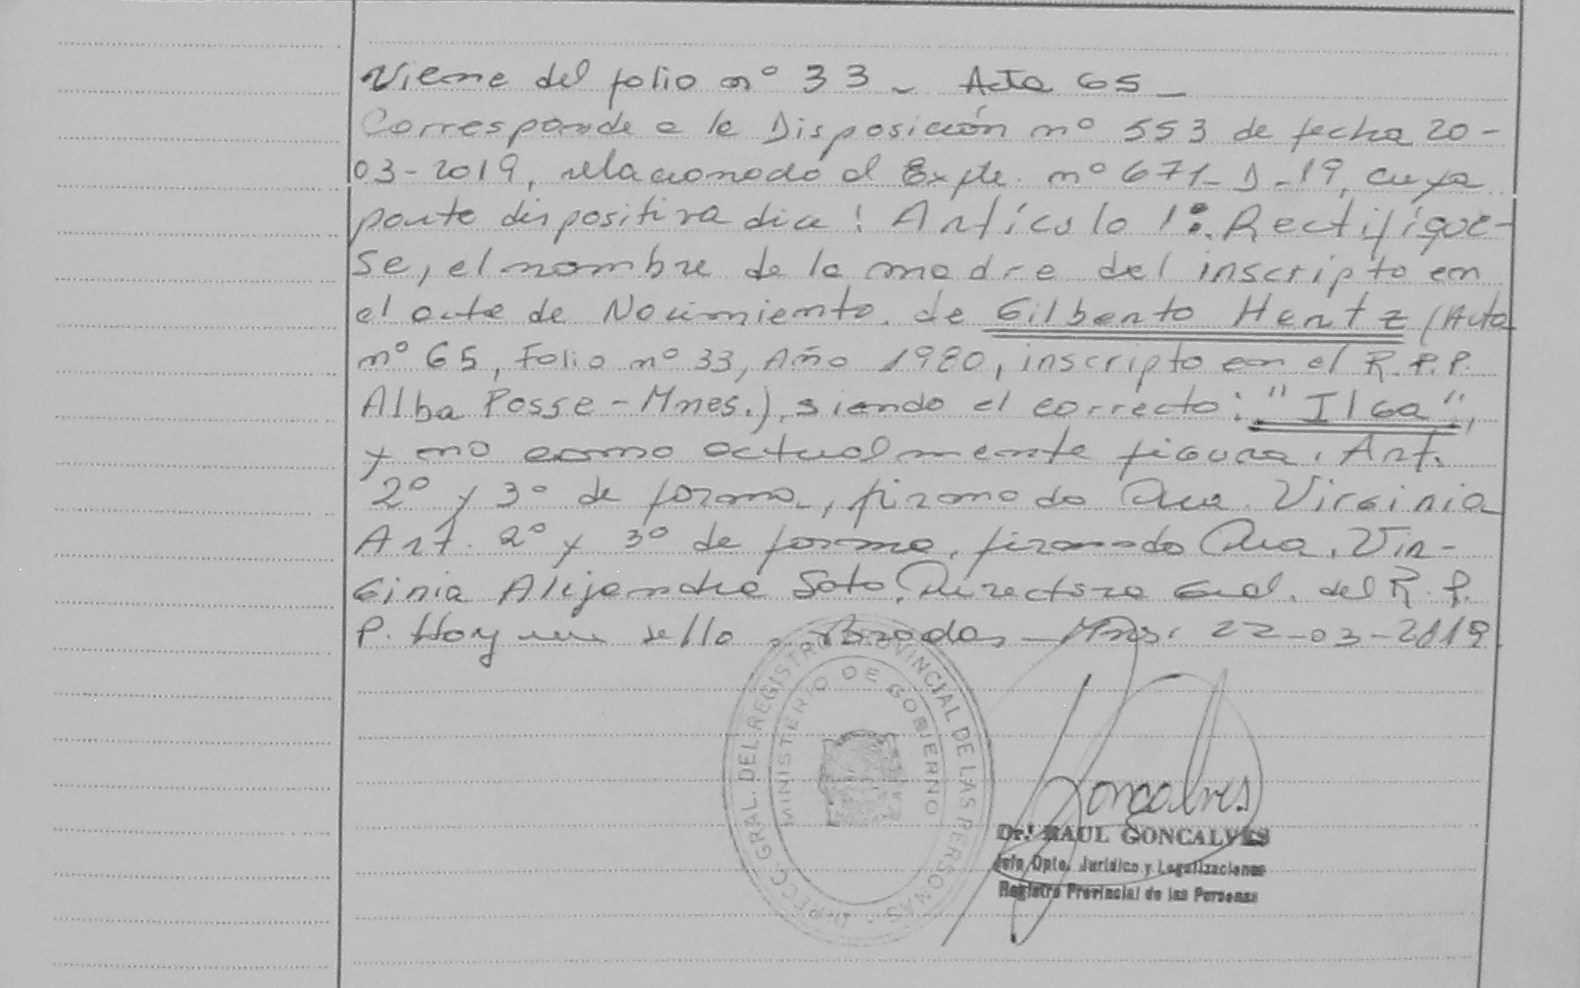 Viene del folio nº 33 - Acta 65 -
Corresponde a la Disposición nº 553 de fecha 20-
03-2019, relacionado al Expte. nº 671-D-19, cuya
parte dispositiva dice: Artículo 1º: Rectifíque-
se, el nombre de la madre del inscripto en
el acta de Nacimiento de Gilberto Hentz (Acta
nº 65, Folio nº 33, Año 1980, inscripto en el R.P.P.
Alba Posse - Mnes.), siendo el correcto: "Ilga",
y no como actualmente figura. Art.
2º y 3º de forma, firmado Dra. Virginia
Art. 2º y 3º de forma, firmado Dra. Vir-
ginia Alejandra Soto, Directora Gral. del R.P.
P. Hay un sello - Posadas - Mnes. 22-03-2019.
DIRECC. GRAL. DEL REGISTRO PROVINCIAL DE LAS PERSONAS
MINISTERIO DE GOBIERNO
Goncalves
Dr. RAUL GONCALVES
Jefe Dpto. Jurídico y Legalizaciones
Registro Provincial de las Personas